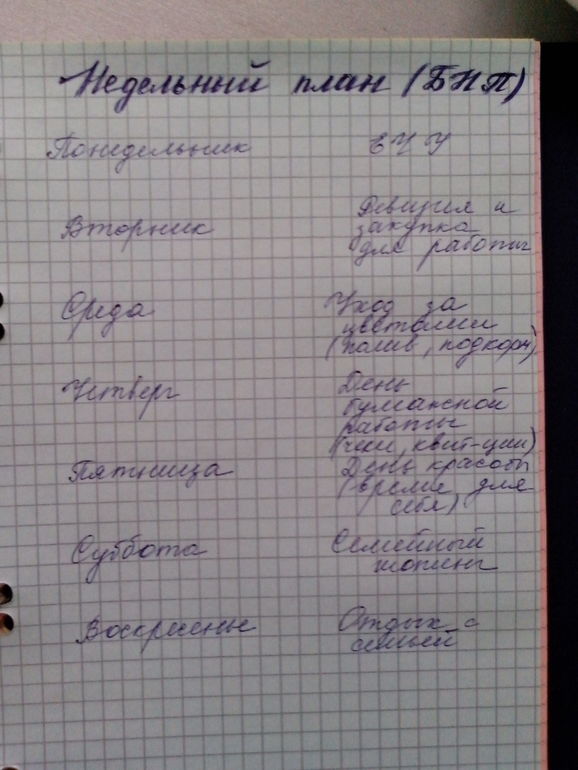 Недельный план (БНП)
Понедельник ЕЧУ
Вторник Ревизия и
закупка
для работы
Среда Уход за
цветами
(полив, подкорм)
Четверг День
бумажной
работы
(чеки, квит-ции)
Пятница День красоты
(время для
себя)
Суббота Семейный
шопинг
Воскресенье Отдых с
семьей